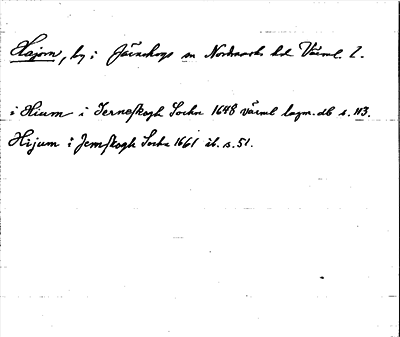 Hajom, by i Järnskogs sn Nordmarks hd Värml. l.
i Hium i Jerneskogh Sochn 1648 värml lagm. db s. 113.
Hijum i Jernskogh Sochn 1661 ib. s. 51.